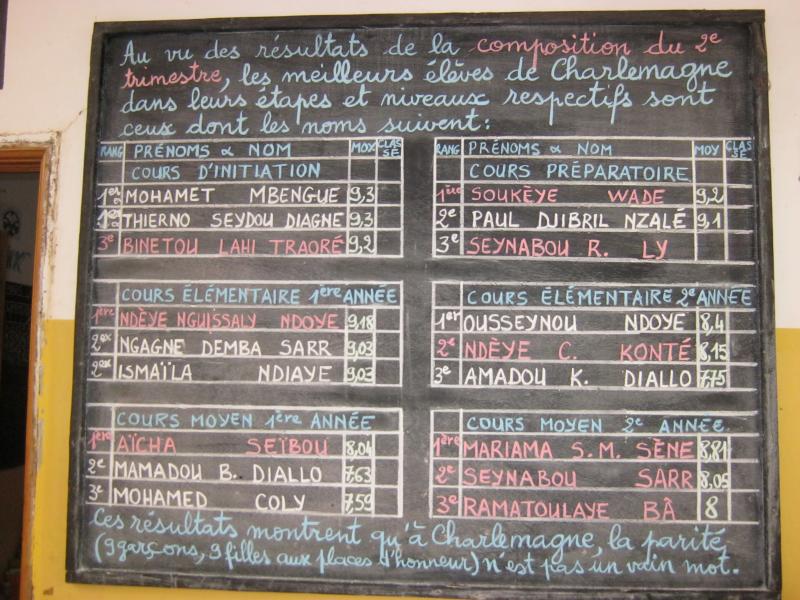 Au vu des résultats de la composition du 2e
trimestre, les meilleurs élèves de Charlemagne
dans leurs étapes et niveaux respectifs sont
ceux dont les noms suivent:
RANG PRÉNOMS & NOM MOY CLASSE
COURS D'INITIATION
1er MOHAMET MBENGUE 9,3
1er THIERNO SEYDOU DIAGNE 9,3
3e BINETOU LAHI TRAORÉ 9,2
RANG PRÉNOMS & NOM MOY CLASSE
COURS PRÉPARATOIRE
1ère SOUKÈYE WADE 9,2
2e PAUL DJIBRIL NZALÉ 9,1
3e SEYNABOU R. LY
COURS ÉLÉMENTAIRE 1ère ANNÉE
1ère NDÈYE NGUISSALY NDOYE 9,18
2ex NGAGNE DEMBA SARR 9,03
2ex ISMAÏLA NDIAYE 9,03
COURS ÉLÉMENTAIRE 2e ANNÉE
1er OUSSEYNOU NDOYE 8,4
2e NDÈYE C. KONTÉ 8,15
3e AMADOU K. DIALLO 7,75
COURS MOYEN 1ère ANNÉE
1ère AÏCHA SEÏBOU 8,04
2e MAMADOU B. DIALLO 7,63
3e MOHAMED COLY 7,59
COURS MOYEN 2e ANNÉE.
1ère MARIAMA S. M. SÈNE 8,81
2e SEYNABOU SARR 8,05
3e RAMATOULAYE BÂ 8
Ces résultats montrent qu'à Charlemagne, la parité,
(9 garçons, 9 filles aux places d'honneur) n'est pas un vain mot.